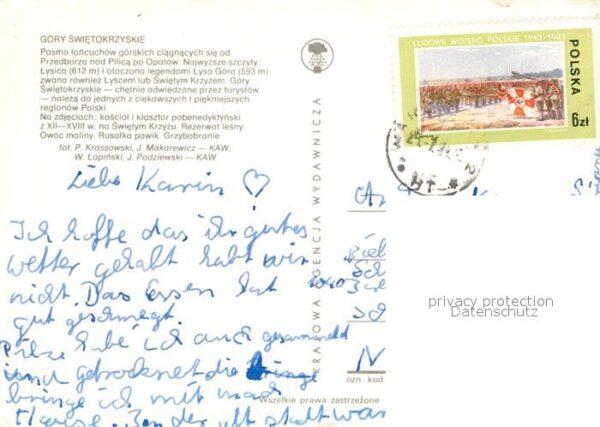 GÓRY ŚWIĘTOKRZYSKIE
Pasmo łańcuchów górskich ciągnących się od
Przedborza nad Pilicą po Opatów. Najwyższe szczyty:
Łysica (612 m) i otoczona legendami Łysa Góra (593 m)
zwana również Łyścem lub Świętym Krzyżem. Góry
Świętokrzyskie — chętnie odwiedzane przez turystów
— należą do jednych z ciekawszych i piękniejszych
regionów Polski.
Na zdjęciach: kościół i klasztor pobenedyktyński
z XII—XVIII w. na Świętym Krzyżu. Rezerwat leśny
Owoc maliny. Rusałka pawik. Grzybobranie
fot. P. Krassowski, J. Makarewicz — KAW,
W. Łapiński, J. Podziewski — KAW
Liebe Karin ♡
Ich hoffe das ihr gutes
wetter gehabt habt wir
nicht. Das Essen hat
gut geschmegt
Pilze habe ich auch gesammeld
und getrocknet die
bringe ich mit nach
Hause. In der stadt war
KRAJOWA AGENCJA WYDAWNICZA
LUDOWE WOJSKO POLSKIE 1943-1983
POLSKA
6zł
ozn. kod.
Wszelkie prawa zastrzeżone
privacy protection
Datenschutz